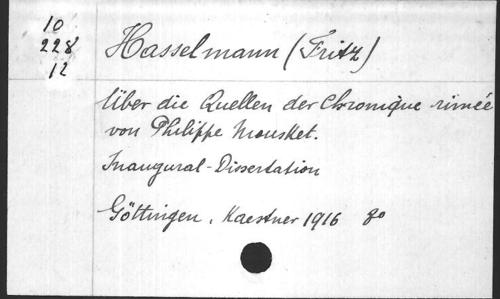 10
228
12
Hasselmann (Fritz)
Über die Quellen der Chronique rimée
von Philippe Mousket.
Inaugural-Dissertation
Göttingen, Kaestner 1916 8o